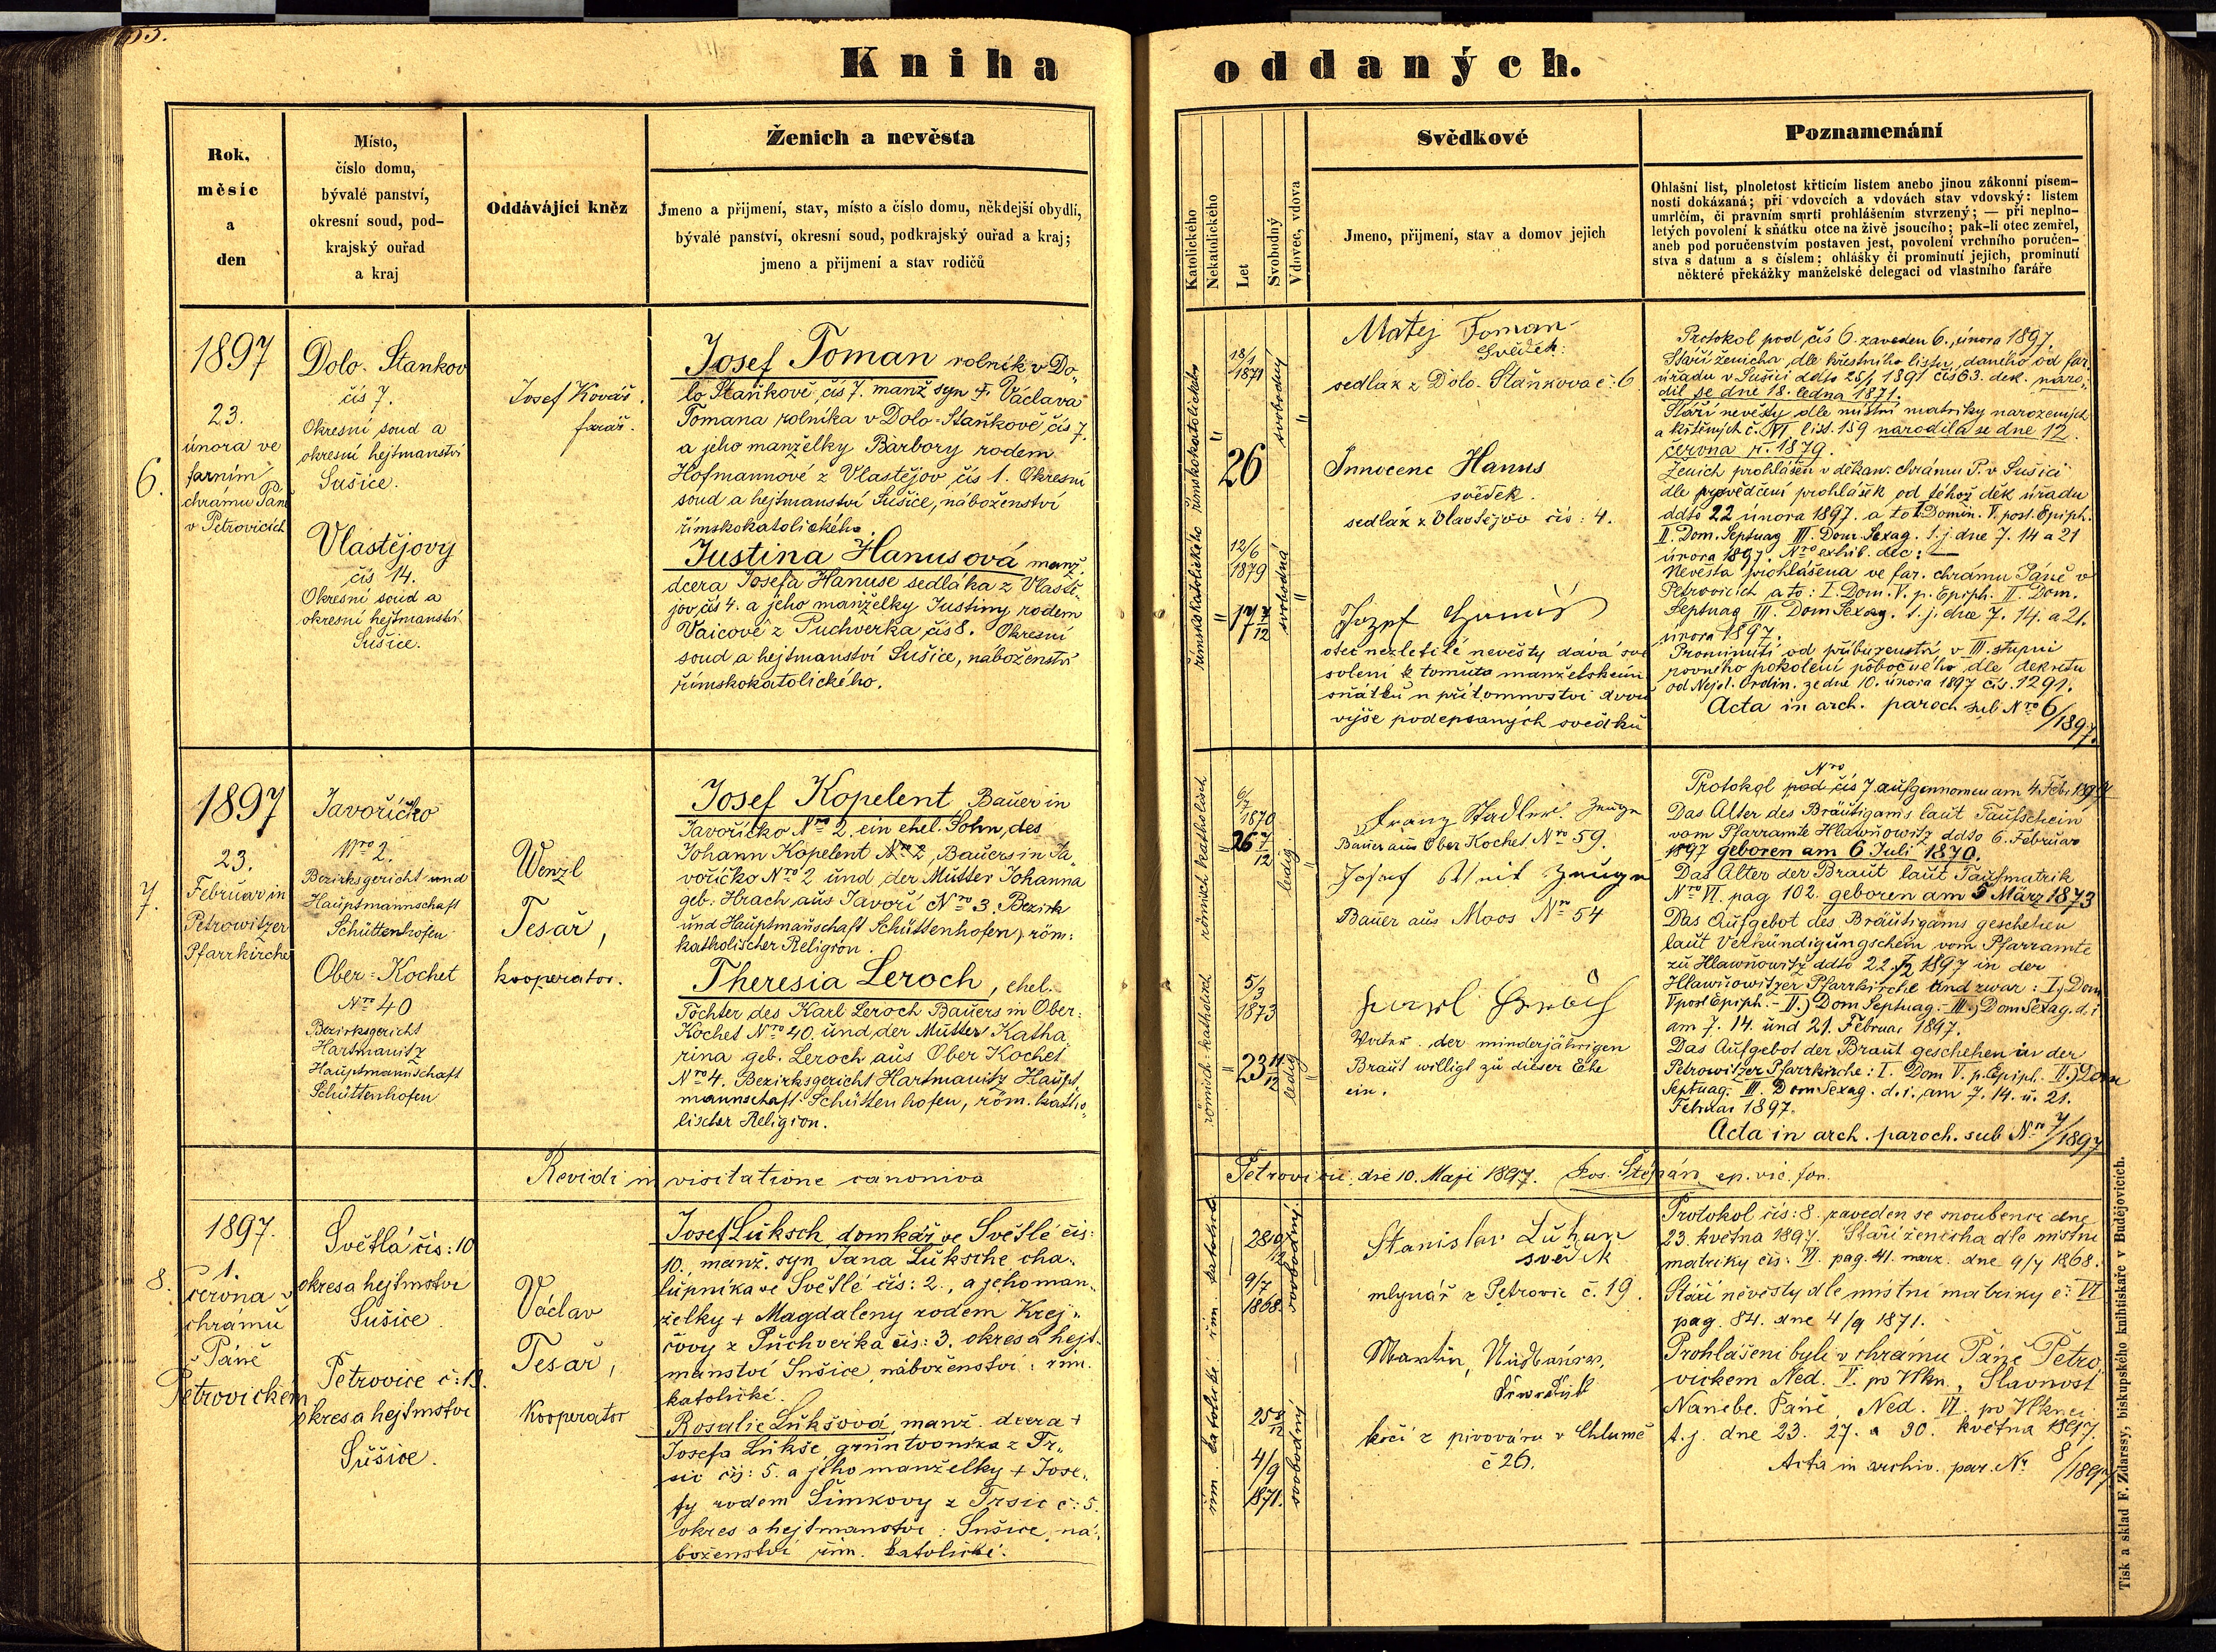 Kniha oddaných.
Rok,
měsíc
a
den
Místo,
číslo domu,
bývalé panství,
okresní soud, pod-
krajský ouřad
a kraj
Oddávající kněz
Ženich a nevěsta
Jmeno a přijmení, stav, místo a číslo domu, někdejší obydlí,
bývalé panství, okresní soud, podkrajský ouřad a kraj;
jmeno a přijmení a stav rodičů
Katolického
Nekatolického
Let
Svobodný
Vdovec, vdova
Svědkové
Jmeno, přijmení, stav a domov jejich
Poznamenání
Ohlašní list, plnoletost křticím listem anebo jinou zákonní písem-
ností dokázaná; při vdovcích a vdovách stav vdovský: listem
umrlčím, či pravním smrti prohlášením stvrzený; — při neplno-
letých povolení k sňátku otce na živě jsoucího; pak-li otec zemřel,
aneb pod poručenstvím postaven jest, povolení vrchního poručen-
stva s datum a s číslem; ohlášky či prominutí jejich, prominutí
některé překážky manželské delegací od vlastního faráře
6.
1897
23.
února ve
farním
chrámu Páně
v Petrovicích
Dolo-Stankov
čís 7.
Okresní soud a
okresní hejtmanství
Sušice.
Vlastějovy
čís 14.
Okresní soud a
okresní hejtmanství
Sušice.
Josef Kovář.
farář.
Josef Toman rolník v Do-
lo-Staňkově, čís 7. manž syn + Václava
Tomana rolníka v Dolo-Staňkově čís 7.
a jeho manželky Barbory rodem
Hofmannové z Vlastějov čís 1. Okresní
soud a hejtmanství Sušice, náboženství
římskokatolického.
Justina Hanusová manž.
dcera Josefa Hanuse sedláka z Vlastě-
jov čís 4. a jeho manželky Justiny rodem
Vaicové z Puchverka čís 8. Okresní
soud a hejtmanství Sušice, náboženství
římskokatolického.
římskokatolického
18/1
1871
26
svobodný
římskokatolického
12/6
1879
17
svobodná
Matěj Toman
Svědek:
sedlák z Dolo-Staňkova č: 6
Innocenc Hanus
svědek.
sedlák z Vlastějov čís: 4.
otec nezletilé nevěsty dává své
svolení k tomuto manželskému
sňátku u přítomnosti dvou
výše podepsaných svědků
Protokol pod čís 6. zaveden 6. února 1897.
Stáří ženicha, dle křestního listu, daného od far.
úřadu v Sušici ddto 28/1 1891 čís 63. dek. naro-
dil se dne 18. ledna 1871.
Stáří nevěsty dle místní matriky narozených
a křtěných č. VI list. 159 narodila se dne 12.
června r. 1879.
Ženich prohlášen v děkan. chrámu P. v Sušici
dle vysvědčení prohlášek od téhož děk úřadu
ddto 22 února 1897. a to I. Domin. V. post. Epiph.
II. Dom. Septuag III. Dom. Sexag. t.j. dne 7. 14 a 21
února 1897. Nro exhib. dec: —
Nevěsta prohlášena ve far. chrámu Páně v
Petrovicích a to: I. Dom. V. p. Epiph. II. Dom.
Septuag III. Dom Sexag. t.j. dne 7. 14. a 21.
února 1897.
Prominutí od příbuzenství v III. stupni
rovného pokolení pobočného dle dekretu
od Nejd. Ordin. ze dne 10. února 1897 čís. 1291.
Acta in arch. paroch sub Nro 6/1897.
7.
1897
23.
Februar in
Petrowitzer
Pfarrkirche
Javoříčko
Nro 2.
Bezirksgericht und
Hauptmannschaft
Schüttenhofen
Ober-Kochet
Nro 40
Bezirksgericht
Hartmanitz
Hauptmannschaft
Schüttenhofen
Wenzl
Tesař,
kooperator.
Josef Kopelent, Bauer in
Javoříčko Nro 2. ein ehel. Sohn, des
Johann Kopelent Nro 2, Bauers in Ja-
voříčko Nro 2 und der Mutter Johanna
geb. Hrach aus Javoří Nro 3. Bezirk
und Hauptmanschaft Schüttenhofen, röm:
katholischer Religion.
Theresia Leroch, ehel.
Tochter des Karl Leroch Bauers in Ober-
Kochet Nro 40. und der Mutter Katha-
rina geb. Leroch aus Ober Kochet
Nro 4. Bezirksgericht Hartmanitz Haupt-
mannschaft: Schüttenhofen, röm. katho-
lischer Religion.
römisch katholisch
6/7
1870
26 7/12
ledig
römisch-katholisch
5/3
1873
23 11/12
ledig
Franz Stadler. Zeuge
Bauer aus Ober Kochet Nro 59.
Josef Zeuge
Bauer aus Moos Nro 54
Karl
Vater. der minderjährigen
Braut willigt zu dieser Ehe
ein.
Protokol pod čís Nro 7 aufgenommen am 4. Feb. 1897
Das Alter des Bräutigams laut Taufschein
vom Pfarramte Hlawniowitz ddto 6. Februar
1897 geboren am 6 Juli 1870.
Das Alter der Braut laut Taufmatrik
Nro VI. pag 102. geboren am 5 März 1873
Das Aufgebot des Bräutigams geschehen
laut Verkündigungschein vom Pfarramte
zu Hlawniowitz ddto 22./2 1897 in der
Hlawniowitzer Pfarrkirche und zwar: I.) Dom
V post Epiph. - II.) Dom Septuag. - III.) Dom Sexag. d. i.
am 7. 14. und 21. Februar 1897.
Das Aufgebot der Braut geschehen in der
Petrowitzer Pfarrkirche: I. Dom V. p. Epiph. II.) Dom
Septuag. III. Dom Sexag. d. i. am 7. 14. u. 21.
Februar 1897.
Acta in arch. paroch. sub Nro 7/1897
Revidi in visitatione canonica
Petrovicii, die 10. Maji 1897. Jos. Štěpán ep. vic. for.
8.
1897.
1.
června v
chrámu
Páně
Petrovickém
Světlá čís: 10
okres a hejtmství
Sušice
Petrovice č: 19.
okres a hejtmství
Sušice.
Václav
Tesař,
Kooperator
Josef Luksch, domkář ve Světlé čís:
10., manž. syn Jana Luksche cha-
lupníka ve Světlé čís: 2., a jeho man-
želky + Magdaleny rodem Krej-
čovy z Puchverka čís: 3. okres a hejt-
manství Sušice, náboženství: řím.
katolické.
Rosalie Lukšová, manž. dcera +
Josefa Lukše, gruntovníka z Tr-
sic čís: 5. a jeho manželky + Jose-
fy rodem Šimkovy z Trsic č: 5.
okres a hejtmanství: Sušice, ná-
boženství řím. katolické.
řím. katolické
28
9/7
1868.
svobodný
řím. katolické
25
4/9
1871.
svobodný
Stanislav Luhan
svědek
mlynář z Petrovic č. 19.
Martin
kočí z pivováru v Chlumě
č 26.
Protokol čís: 8. zaveden se snoubenci dne
23. května 1897. Stáří ženicha dle místní
matriky čís: VI. pag. 41. narz. dne 9/7 1868.
Stáří nevěsty dle místní matriky č: VI
pag. 84. dne 4/9 1871.
Prohlášeni byli v chrámu Páně Petro-
vickém Ned. V. po Vlkn., Slavnost
Nanebe. Páně, Ned. VI. po Vlknci
t. j. dne 23. 27. a 30. května 1897.
Acta in archiv. par. Nr. 8/1897
Tisk a sklad F. Zdarssy, biskupského knihtiskaře v Budějovicích.